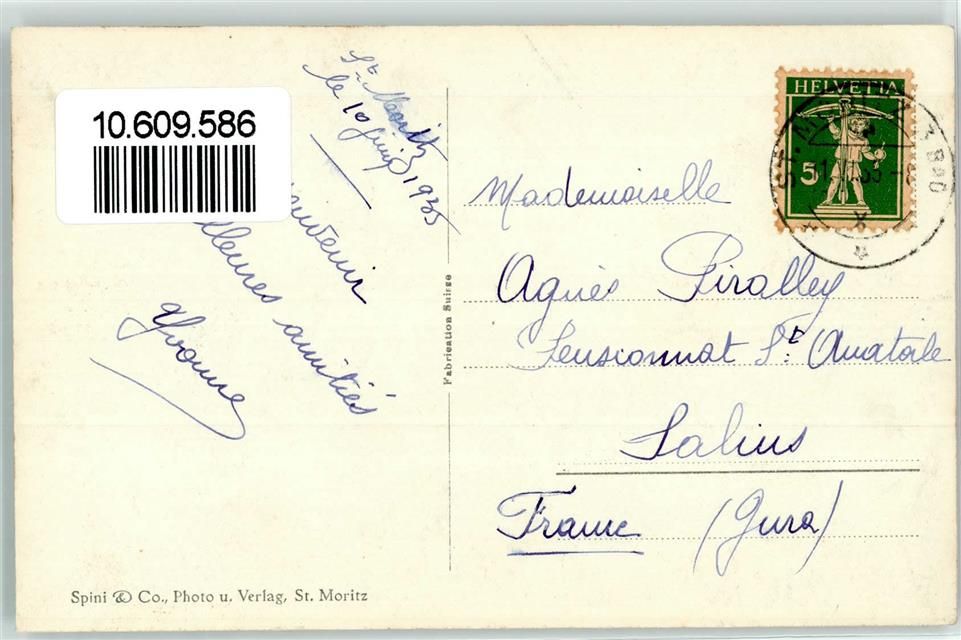 10.609.586
St Moritz
le 10 juin 1935
souvenir
amitiés
Yvonne
Fabrication Suisse
HELVETIA
5
Mademoiselle
Agnès Piralley
Pensionnat St. Anatoile
Salins
France (Jura)
Spini & Co., Photo u. Verlag, St. Moritz